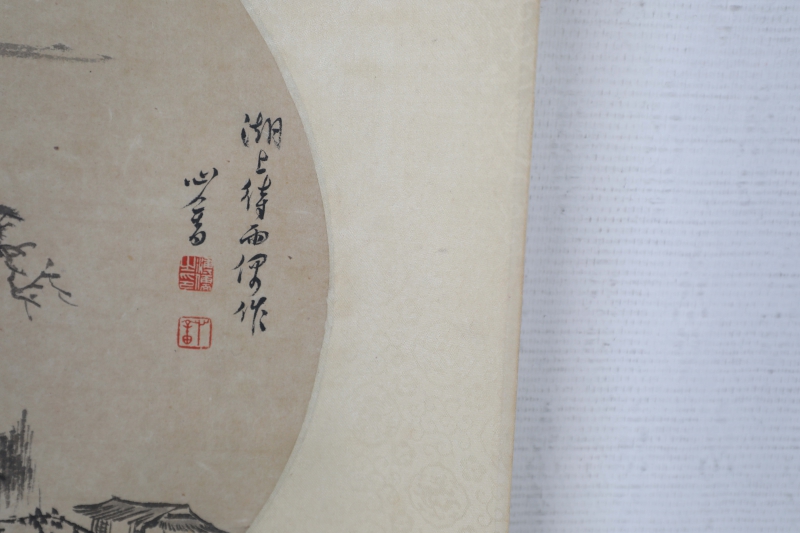 湖上待雨偶作
心畬